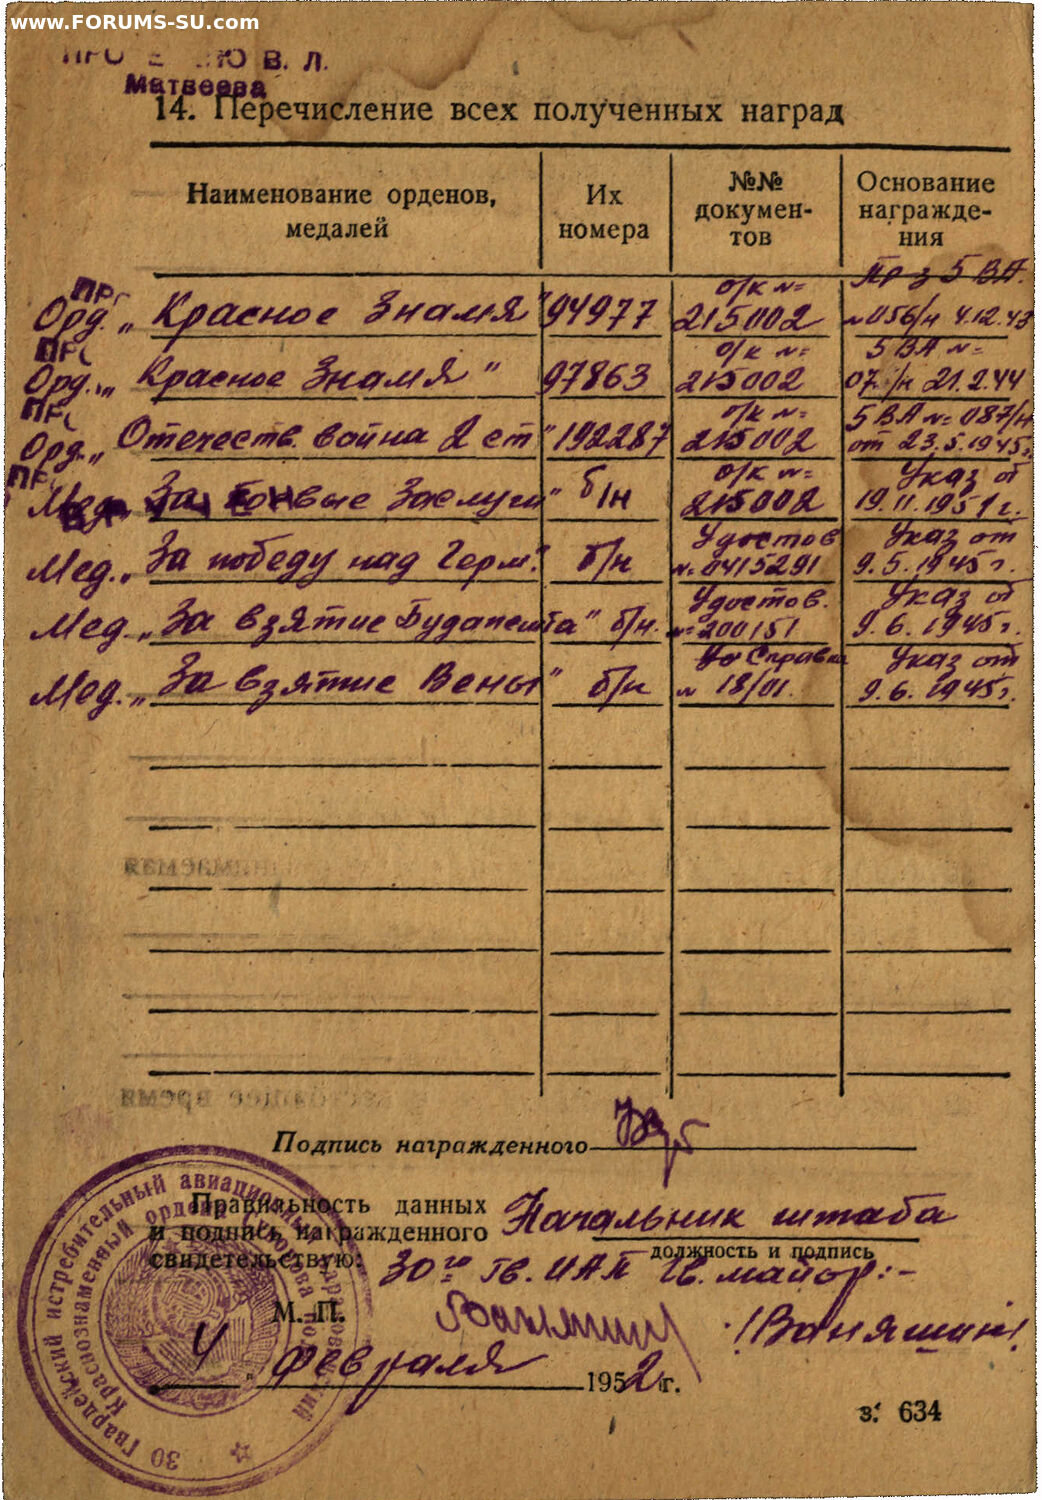 www.FORUMS-SU.com
В. Л.
Матвеева
14. Перечисление всех полученных наград
Наименование орденов, медалей
Их номера
№№ докумен-тов
Основание награжде-ния
Пр-з 5 ВА.
Орд. „Красное Знамя" 94977 о/к №= 215002 №056/н 4.12.43
Орд. „Красное Знамя" 97863 о/к №= 215002 5 ВА №= 07 /н 21.2.44
Орд. „Отечеств. война 2 ст" 192287 о/к №= 215002 5 ВА №= 087/н от 23.5.1945г.
Мед. „За боевые Заслуги" б/н о/к №= 215002 Указ от 19.11.1951г.
Мед. „За победу над Герм." б/н Удостов № 0415291 Указ от 9.5.1945г.
Мед. „За взятие Будапешта" б/н. Удостов. №=200151 Указ от 9.6.1945г.
Мед. „За взятие Вены" б/н Справка № 18/01. Указ от 9.6.1945г.
Подпись награжденного
Правильность данных
и подпись награжденного
свидетельствую:
Начальник штаба
должность и подпись
30го гв. ИАП Гв. майор:-
М. П.
/Ваняшин/
4 февраля 1952 г.
з. 634
30 Гвардейский истребительный авиационный
Краснознаменный ордена